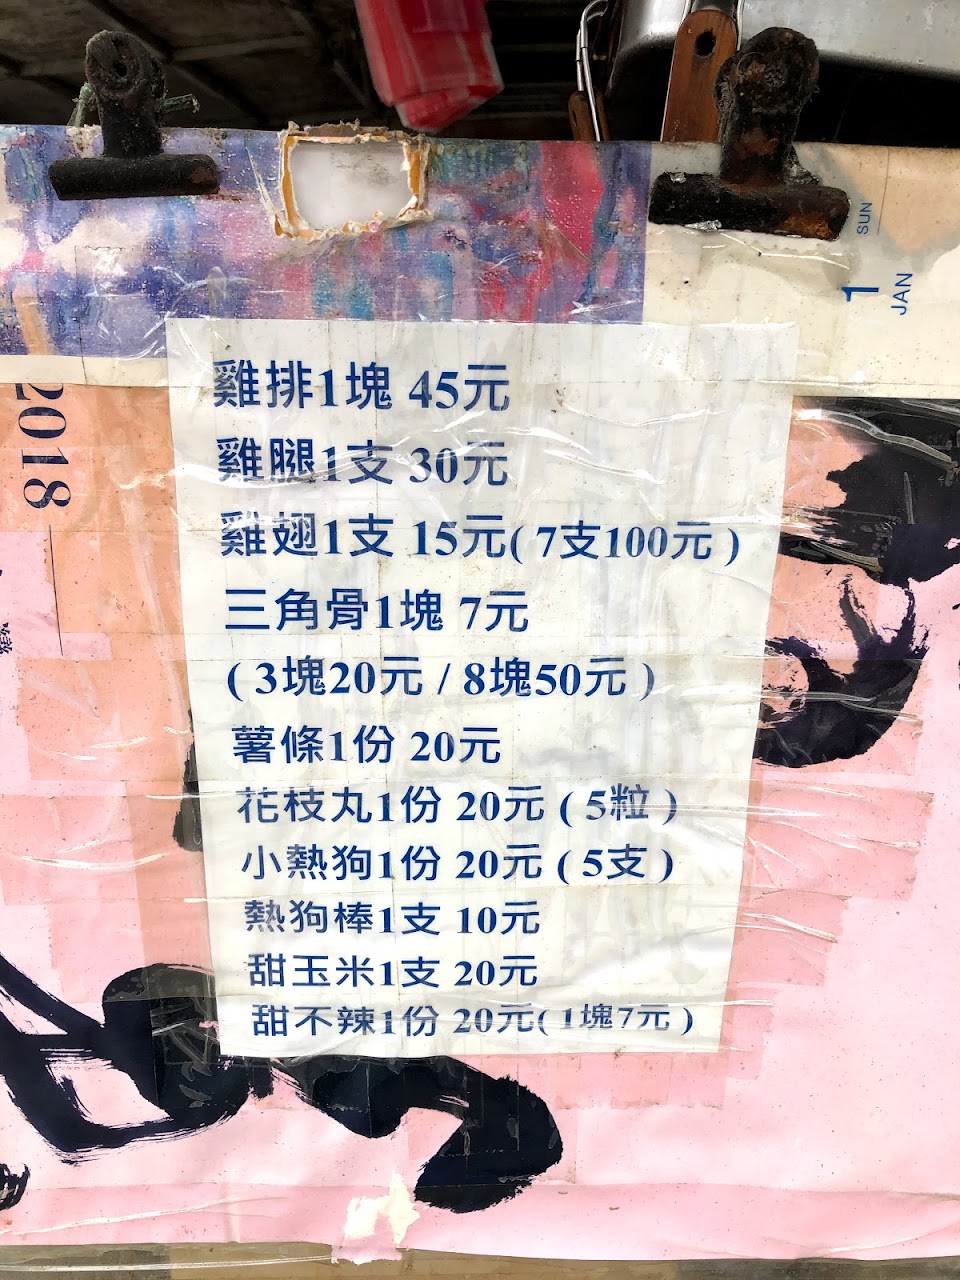 SUN
1
JAN
2018
雞排1塊 45元
雞腿1支 30元
雞翅1支 15元( 7支100元 )
三角骨1塊 7元
( 3塊20元 / 8塊50元 )
薯條1份 20元
花枝丸1份 20元 ( 5粒 )
小熱狗1份 20元 ( 5支 )
熱狗棒1支 10元
甜玉米1支 20元
甜不辣1份 20元( 1塊7元 )